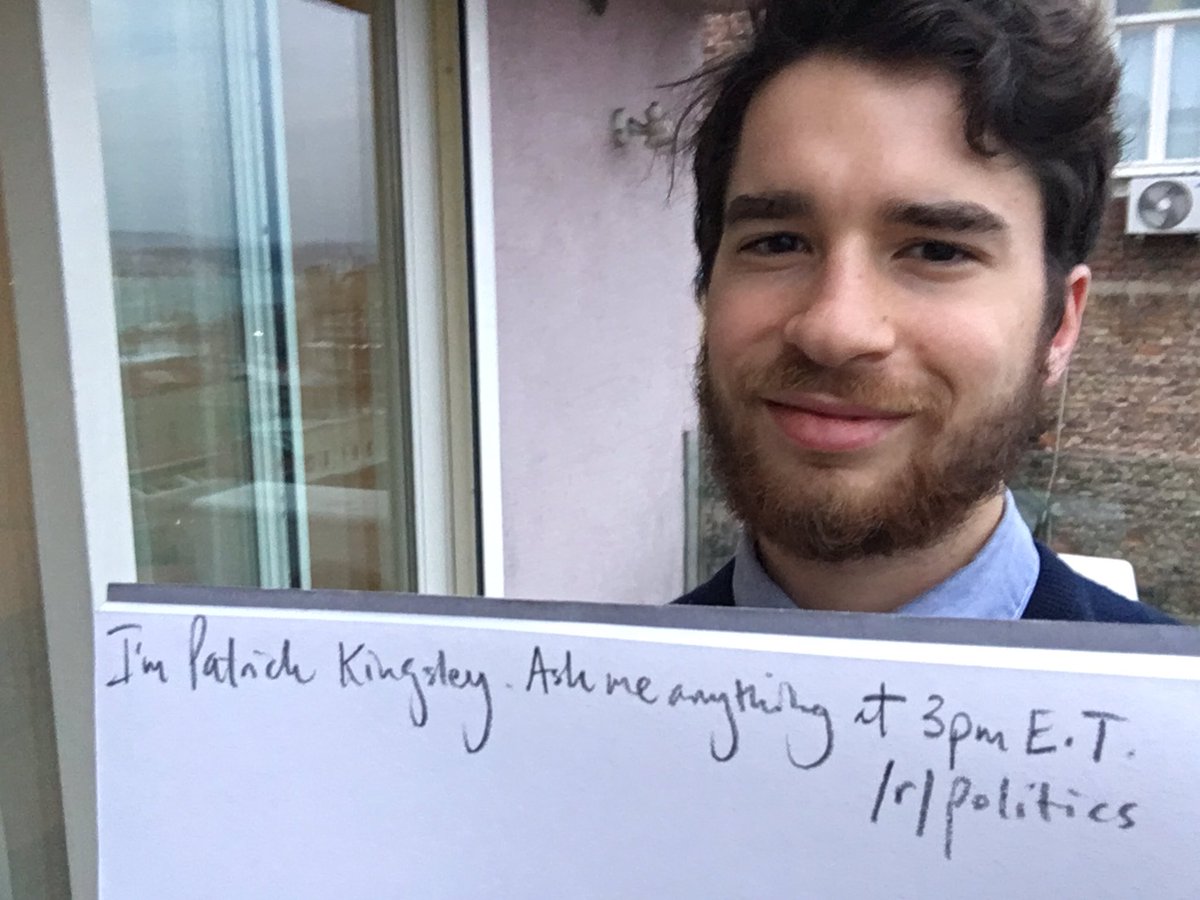 I'm Patrick Kingsley. Ask me anything at 3pm E.T.
/r/politics